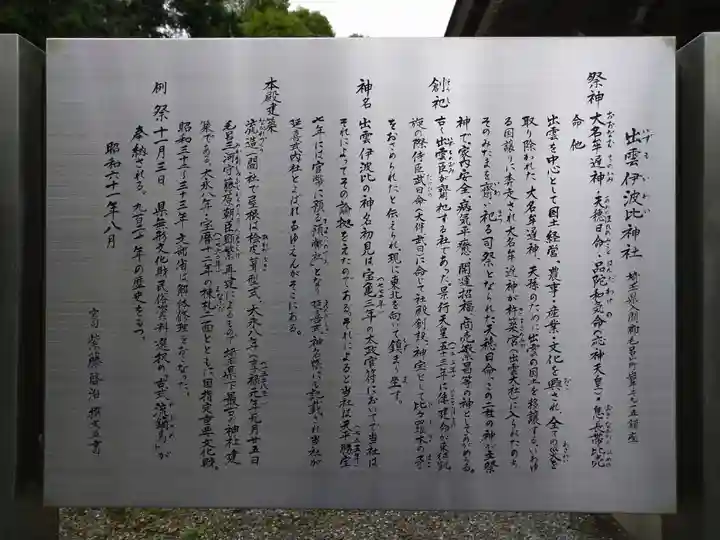 出雲伊波比神社 埼玉県入間郡毛呂山町岩井
祭神 大名牟遅神・天穂日命・品陀和気命(応神天皇)・息長帯比売
命他
出雲を中心として国土経営、農事・産業・文化を興され、全ての災を
取り除かれた、大名牟遅神、天孫のために出雲の国土を移譲する、いわゆ
る国譲りに奔走され大名牟遅神が杵築宮(出雲大社)に入られたのち、
そのみたまを齋い祀る司祭となられた天穂日命、この二柱の神が主祭
神で、家内安全・病気平癒・開運招福・商売繁昌等の神としてあがめる。
創祀 古く出雲臣が齋祀する社であった。景行天皇五十三年に倭建命が東征凱
旋の際侍臣武日命(大伴武日)に命じて社殿創設、神宝として比々羅木の矛
をおさめられたと伝えられ、現に東北を向いて鎮まり坐す。
神名 出雲伊波比の神名初見は宝亀三年の太政官符においてで当社は
それによってその論拠をえたのである。それによると当社は天平勝宝
七年には官幣に預る預幣社となり延喜式神名帳にも記載され当社が
延喜式内社とよばれるゆえんがそこにある。
本殿建築 流造一間社で屋根は桧皮葺型式、大永八年(享禄元年)九月廿五日
毛呂三河守藤原朝臣顕繁再建によるもので埼玉県下最古の神社建
築である。大永八年・宝暦十二年の棟札二面とともに国指定重要文化財。
昭和三十二〜三十三年、文部省は解体修理をおこなった。
例祭 十一月三日 県無形文化財民俗資料選択の古式「流鏑馬」が
奉納される。九百二十年の歴史をもつ。
昭和六十一年八月
宮司 紫藤啓治 撰文並書